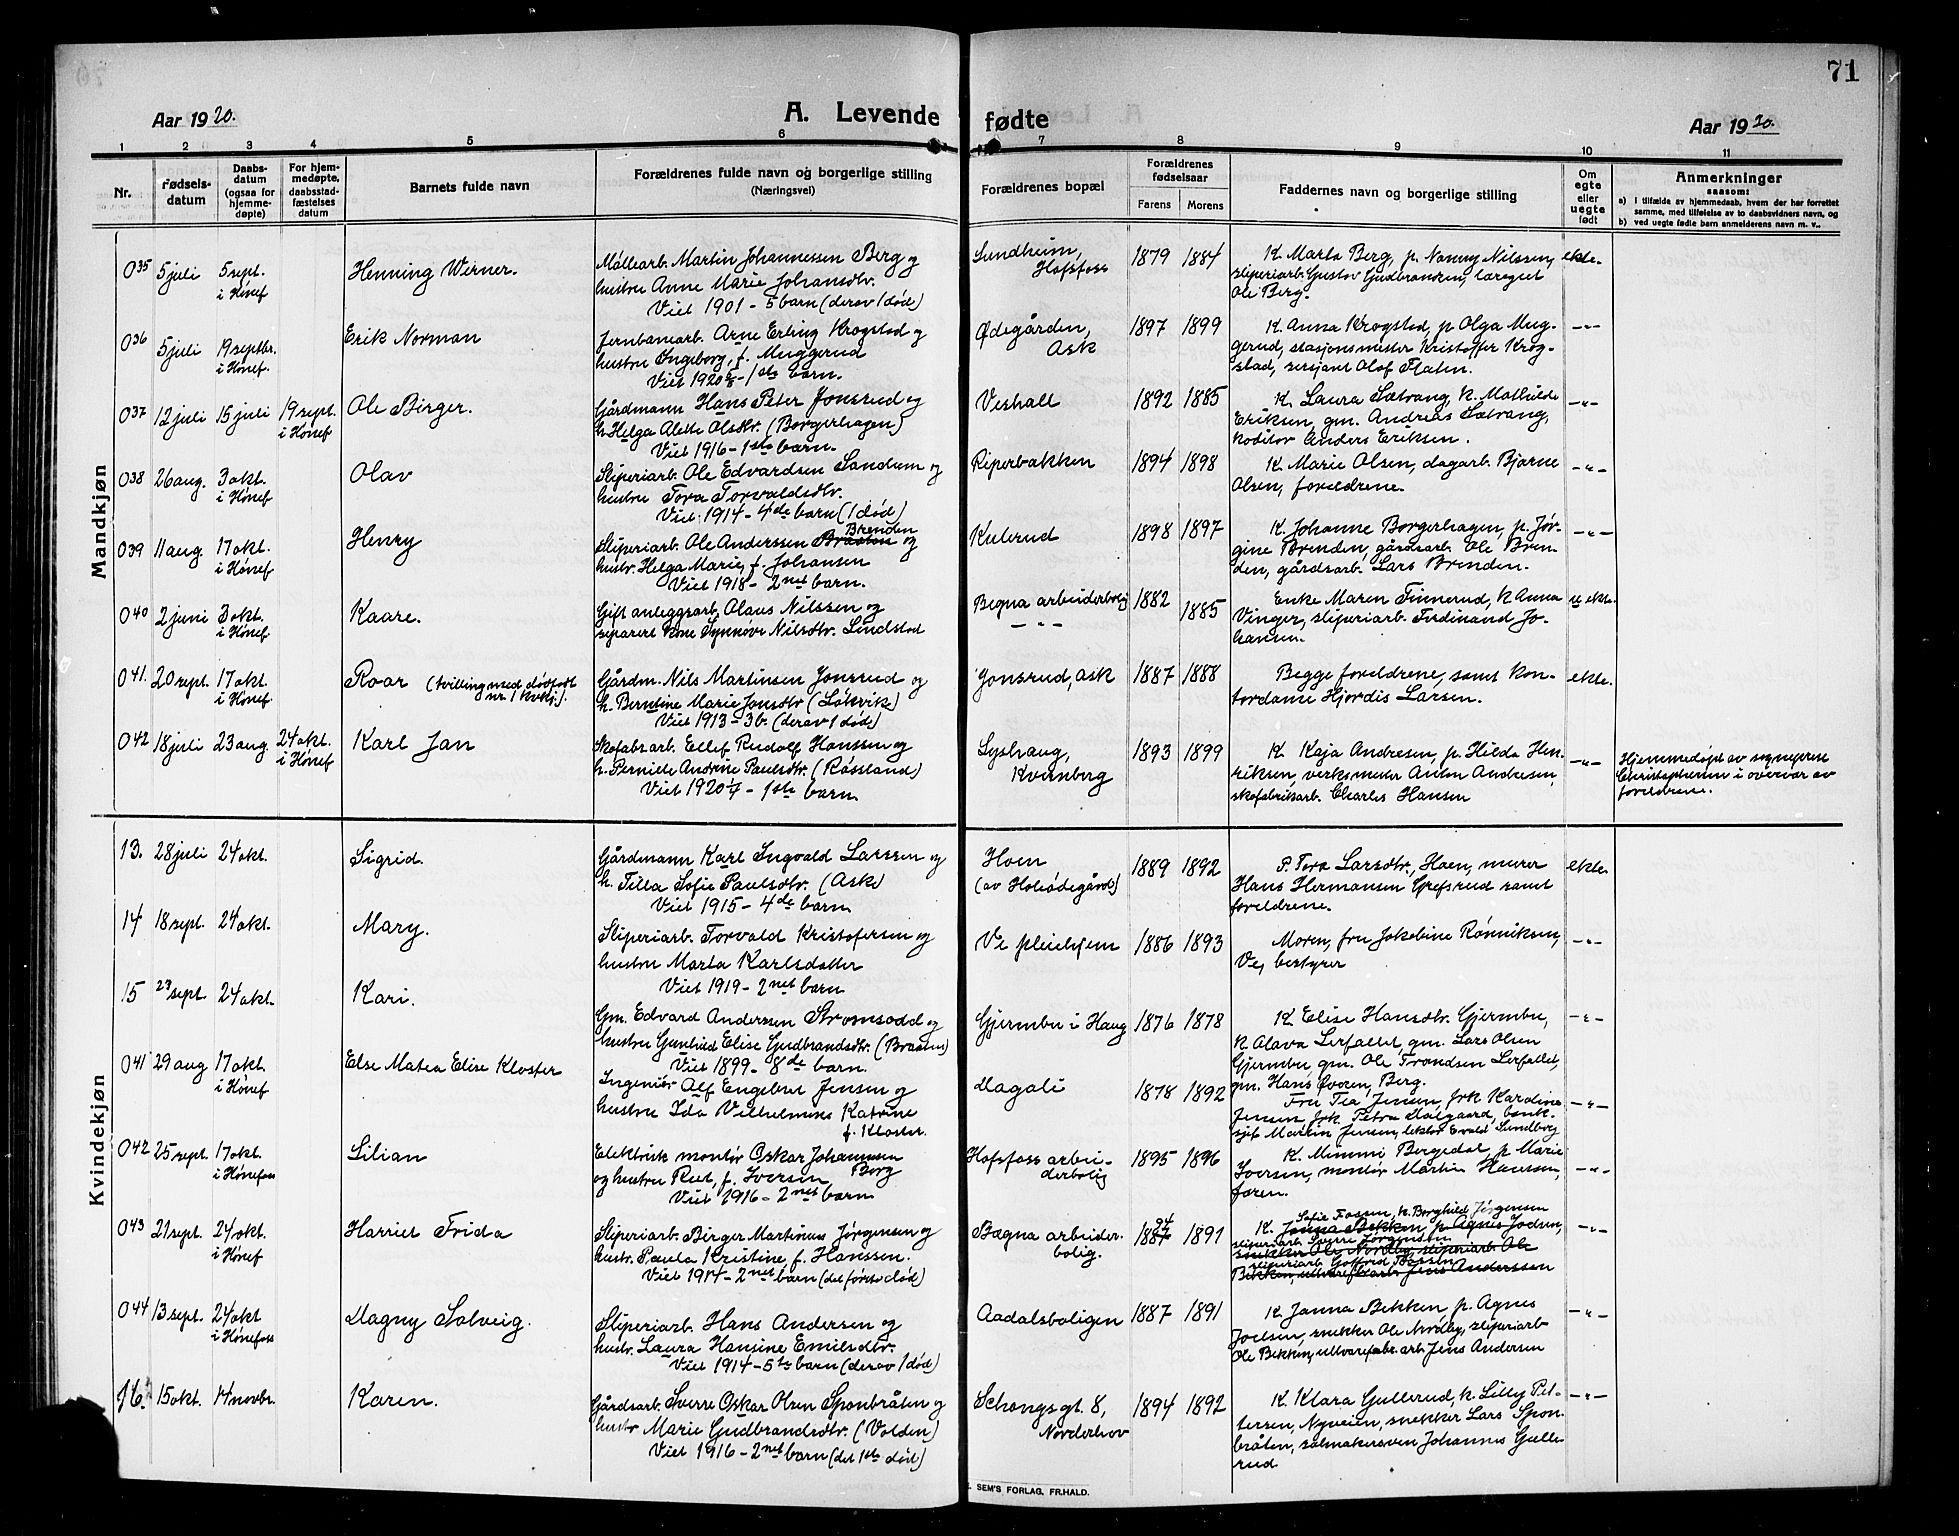 71
Aar 1920. A. Levende fødte Aar 1920.
1 2 3 4 5 6 7 8 9 10 11
Nr.
Fødsels-
datum
Daabs-
datum
(ogsaa for
hjemme-
døpte)
For hjem-
medøpte,
daabsstad-
fæstelses
datum
Barnets fulde navn
Forældrenes fulde navn og borgerlige stilling
(Næringsvei)
Forældrenes bopæl
Forældrenes
fødselsaar
Farens Morens
Faddernes navn og borgerlige stilling
Om
egte
eller
uegte
født
Anmerkninger
saasom:
a) i tilfælde av hjemmedaab, hvem der har forrettet
samme, med tilføielse av to daabsvidners navn, og
b) ved uegte fødte barn anmelderens navn m. v..
Mandkjøn
035 5 juli 5 sept. i Hönef Henning Werner.
Mølloarb. Martin Johannessen Berg og
hustru Anne Marie Johansdtr.
Viet 1901 - 5 barn (derav 1 død)
Sundheim,
Hofsfoss
1879 1884
K. Marta Berg, p. Nanny Nilssen,
sliperiarb. Gustav Gudbransen, læregut
Ole Berg.
ekte.
036 5 juli 19 septbr. i Hönef. Erik Norman
Jernbanearb. Arne Erling Krogstad og
hustru Ingeborg, f. Muggerud
Viet 1920 - 1ste barn.
Ødegården,
Ask
1897 1899
K. Anna Krogstad, p. Olga Mug-
gerud, stasjonsmester Kristoffer Krog-
stad, sersjant Olof Flaten.
-"-
037 12 juli 15 juli 19 sept. i Hönef Ole Birger.
Gårdmann Hans Peter Jonsrud og
h. Helga Alette Olsdtr. (Borgerhagen)
Viet 1916 - 1ste barn.
Veshall
1892 1885
K. Laura Sætrang, k. Mathilde
Eriksen, gm. Andreas Sætrang,
koditor Anders Eriksen.
-"-
038 26 aug. 3 okt. i Hönef Olav
Sliperiarb. Ole Edvardsen Sandum og
hustru Tora Torvaldsdtr.
Viet 1914 - 4de barn (1 død)
Riperbakken
1894 1898
K. Marie Olsen, dagarb. Bjarne
Olsen, foreldrene.
-"-
039 11 aug. 17 okt. i Hönef Henry
Brenden
Sliperiarb. Ole Anderssen Braaten og
hustr. Helga Marie, f. Johansen
Viet 1918 - 2net barn.
Kulerud
1898 1897
K. Johanne Borgerhagen, p. Jør-
gine Brenden, gårdsarb. Ole Bren-
den, gårdsarb. Lars Brenden.
-"-
040 2 juni 3 okt. i Hönef Kaare.
Gift anleggsarb. Olaus Nilssen og
separert kone Synnöve Nilsdtr. Lindstad
Begna arbeiderbolig
-"-
1882 1885
Enke Maren Finnerud, k. Anna
Vinger, sliperiarb. Ferdinand Jo-
hansen.
u ekte.
041. 20 sept. 17 okt. i Hönef Roar (tvilling med dødfødt
nr. 1 kvkj.).
Gårdm. Nils Martinsen Jonsrud og
h. Berntine Marie Jonsdtr (Løkvik)
Viet 1913 - 3 b. (derav 1 død)
Jonsrud, Ask
1887 1888
Begge foreldrene, samt kon-
tordame Hjørdis Larsen.
ekte.
042 18 juli 23 aug. 24 okt. i Hönef Karl Jan
Skofabr.arb. Ellef Rudolf Hanssen og
h. Pernille Andrine Paulsdtr. (Røssland)
Viet 1920 - 1ste barn
Lyshaug,
Kvernberg
1893 1899
K. Kaja Andresen, p. Hilda Hen-
riksen, verksmester Anton Andresen,
skofabrikarb. Charles Hansen
-"-
Hjemmedøpt av sogneprest
Christophersen i overvær av
foreldrene.
Kvindekjøn
13. 28 juli 24 okt. Sigrid.
Gårdmann Karl Ingvald Larssen og
h. Tilla Sofie Paulsdtr. (Ask)
Viet 1915 - 4de barn
Hoen
(av Holeødegård)
1889 1892
P. Tora Larsdtr, Hoen, murer
Hans Hermansen Grefsrud samt
foreldrene.
ekte.
14 18 sept. 24 okt. Mary.
Sliperiarb. Torvald Kristofersen og
hustru Marta Karlsdatter
Viet 1919 - 2net barn
Ve pleiehjem
1886 1893
Moren, fru Jokobine Rønniksen,
Ve, bestyrer
-"-
15 23 sept. 24 okt. Kari.
Gm. Edvard Anderssen Stromsodd og
hustru Gunhild Elise Gudbrandsdtr. (Braaten)
Viet 1899 - 8de barn.
Gjermbu i Haug
1876 1878
K. Elise Hansdtr. Gjermbu,
K. Alava Lerfallet, gm. Lars Olsen
Gjermbu, gm. Ole Trondsen Lerfallet,
gm. Hans Goven, Berg.
-"-
041 29 aug 17 okt. i Hönef Else Matea Elise Kloster
Ingeniör Alf Engebret Jensen og
hustru Ida Vilhelmine Katrine
f. Kloster.
Dagali
1878 1892
Fru Tea Jensen, frk. Kardine
Jensen, frk. Petra Dalgaard, bank-
sjef Martin Jensen, lektor Evald Sundberg
-"-
042 25 sept. 17 okt. i Hönefoss Lilian
Elektrisk montør Oskar Johannesen
Berg
og hustru Rut, f. Iversen
Viet 1916 - 2net barn
Hofsfoss arbei-
derbolig
1895 1896
K. Mimmi Bergedal, p. Marie
Iversen, montør Martin Hanssen,
faren.
-"-
043 21 sept. 24 okt. i Hönef Harriet Frida
Sliperiarb. Birger Martinius Jørgensen og
hustr. Paula Kristine f. Hanssen.
Viet 1914 - 2net barn (det første død)
Bægna arbeider-
bolig.
94
1887 1891
Sofie Fossen, k. Borghild Jörgensen
K. Janna Bekken, p. Agnes Joelsen,
sliperiarb. Sverre Jörgensen
snekker Ole Nordby, sliperiarb. Ole
sliperiarb. Gottfrid Fossen
Bekken, ullvarefabr.arb. Jens Anderssen
-"-
044 13 sept. 24 okt i Hönefoss Dagny Solveig.
Sliperiarb. Hans Andersen og
hustr. Laura Hansine Emilsdtr.
Viet 1914 - 5te barn (derav 1 død)
Aadalsboligen
1887 1891
K. Janna Bekken p. Agnes
Joelsen, snekker Ole Nordby, sliperiarb
Ole Bekken, ullvarefabr. arb. Jens Andersen
-"-
16. 15 okt. 14 novbr. Karen.
Gårdsarb. Sverre Oskar Olsen Sponbråten og
hustr Marie Gudbrandsdtr. (Volden)
Viet 1916 - 2net barn (det 1ste død)
Schongsgt. 8,
Norderhov
1894 1892
K. Klara Gullerud, k. Lilly Pet-
tersen, Nyveien, snekker Lars Spon-
bråten, salmakersven Johannes Gulle-
rud
-"-
E. SEM'S FORLAG, FR.HALD.